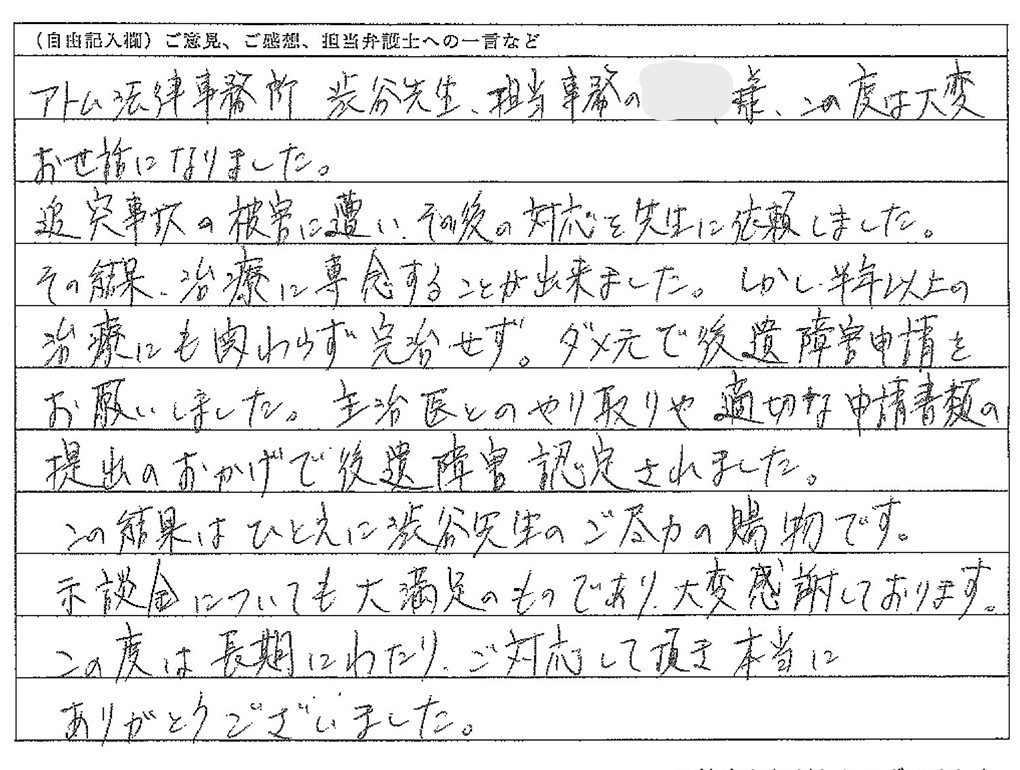 （自由記入欄）ご意見、ご感想、担当弁護士への一言など
アトム法律事務所 渋谷先生、担当事務の 様、この度は大変
お世話になりました。
追突事故の被害に遭い、その後の対応を先生に依頼しました。
その結果、治療に専念することが出来ました。しかし、半年以上の
治療にも関わらず完治せず。ダメ元で後遺障害申請を
お願いしました。主治医とのやり取りや適切な申請書類の
提出のおかげで後遺障害認定されました。
この結果はひとえに渋谷先生のご尽力の賜物です。
示談金についても大満足のものであり、大変感謝しております。
この度は長期にわたり、ご対応して頂き本当に
ありがとうございました。